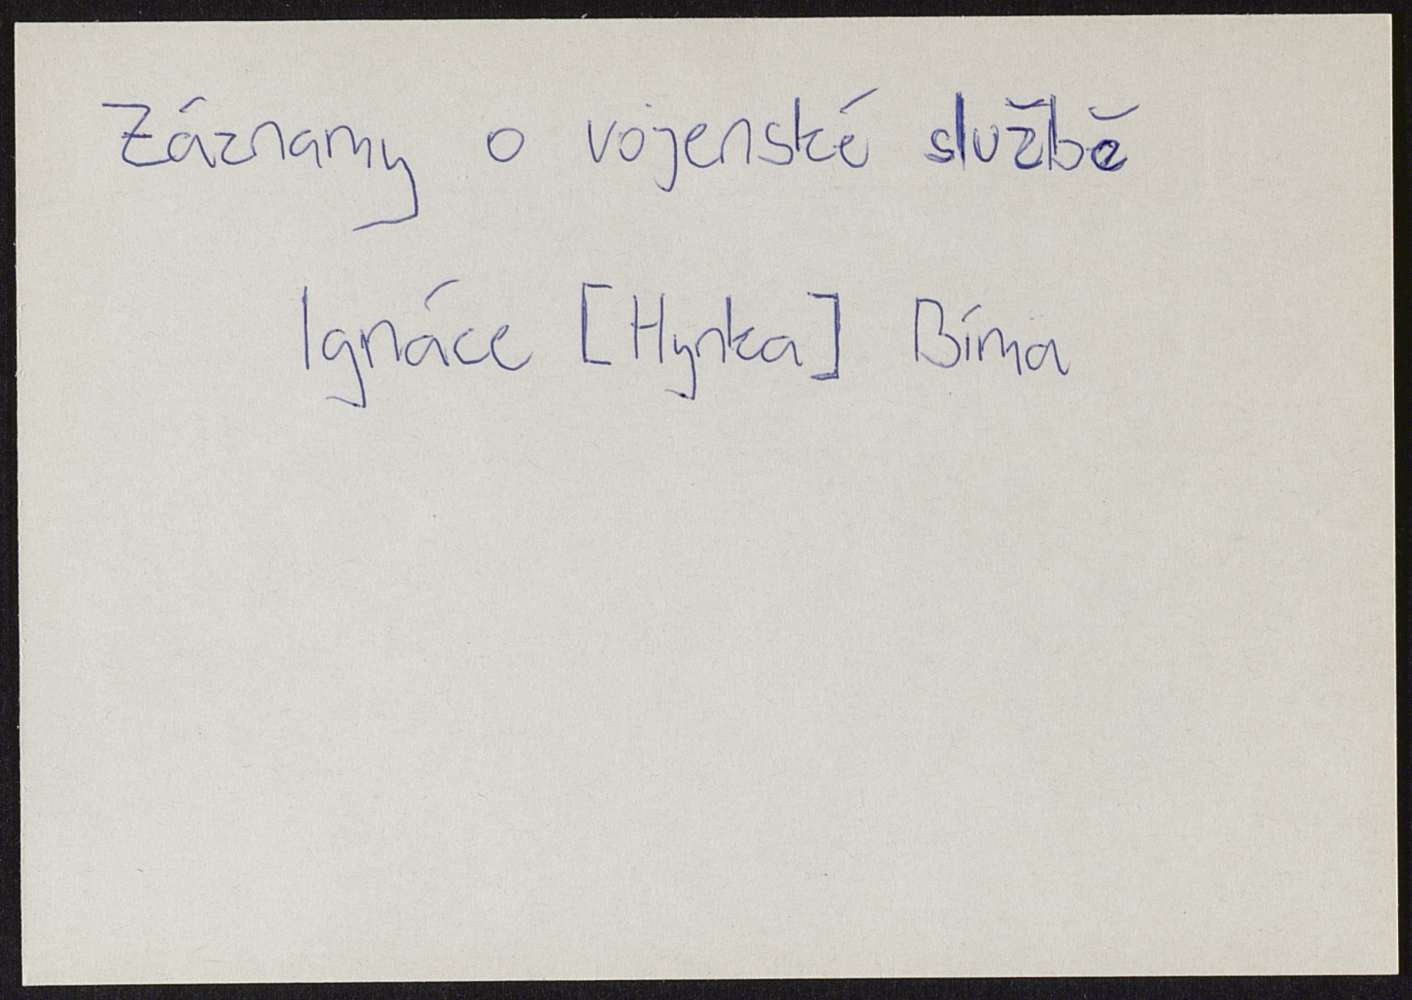 Záznamy o vojenské službě
Ignáce [Hynka] Bíma